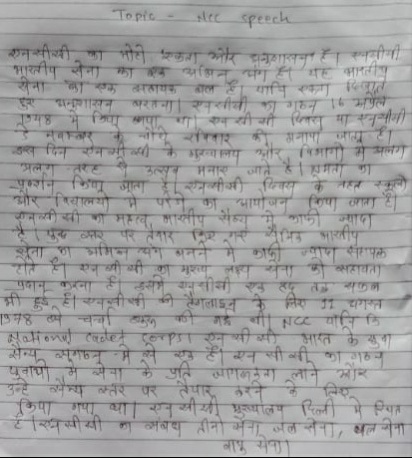 Topic - NCC speech
एन सी सी का मोटो एकता और अनुशासन है। एनसीसी
भारतीय सेना का एक अभिन्न अंग है। यह भारतीय
सेना का एक सहायक बल है। यानि रक्षा
हर अनुशासन बरतना। एनसीसी का गठन 16 अप्रैल
1948 में किया गया था। एन सी सी दिवस या एनसीसी
डे नवम्बर के चौथे रविवार को मनाया जाता है।
इस दिन एन सी सी के मुख्यालय और विभागों में अलग
अलग तरह से उत्सव मनाए जाते है। क्षमता का
प्रदर्शन किया जाता है। एनसीसी दिवस के तहत स्कूलों
और विद्यालयों में परेड का आयोजन किया जाता है।
एन सी सी का महत्व भारतीय सैन्य में काफी ज्यादा
है। स्तर पर तैयार किए गए सैनिक भारतीय
सेना का अभिन्न अंग बनने में काफी ज्यादा सहायक
होते है। एन सी सी का मुख्य लक्ष्य सेना की सहायता
प्रदान करना है। इसमें एन सी सी एक हद तक सफल
भी हुई है। एनसीसी की के लिए 11 अगस्त
1978 को चर्चा की गई थी। NCC यानि कि
National cadet corps। एन सी सी भारत के
सैन्य संगठन में से एक है। एन सी सी का गठन
युवाओं में सेना के प्रति जागरूकता लाने और
उन्हें सैन्य स्तर पर तैयार करने के लिए
किया गया था। एन सी सी मुख्यालय दिल्ली में स्थित
है। एन सी सी का संबंध तीनों सेना जल सेना, थल सेना
वायु सेना।